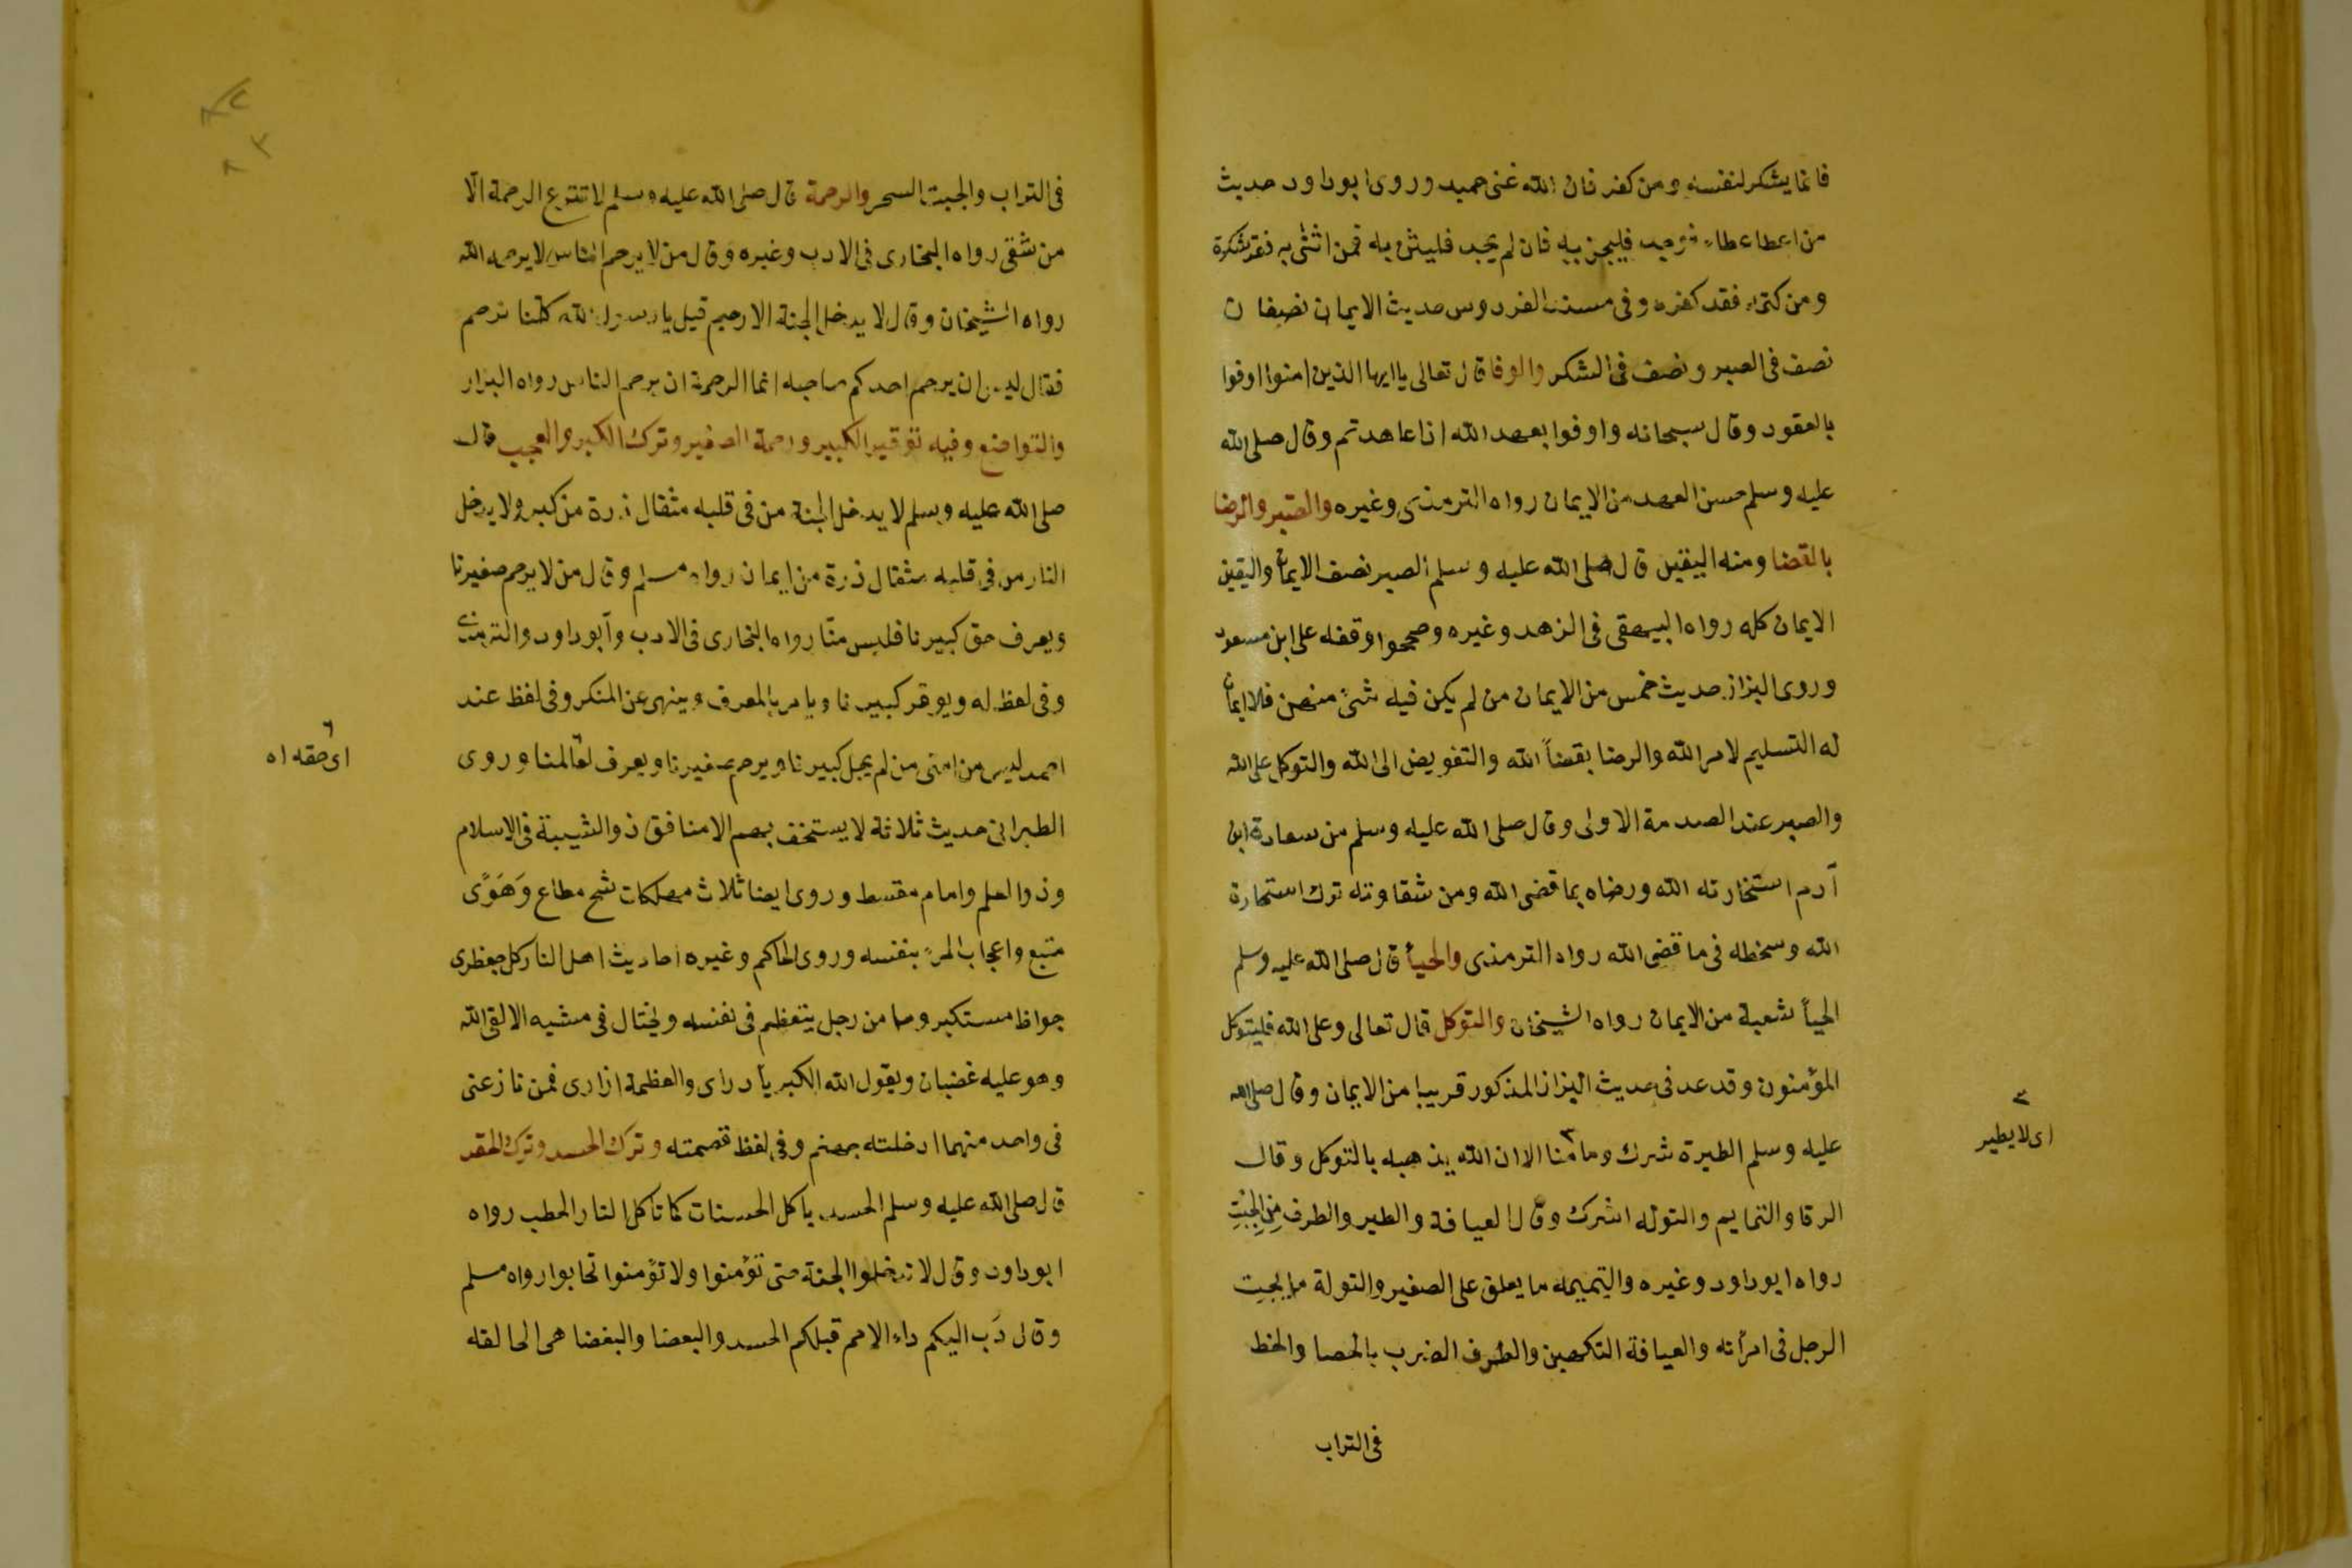 فانما يشكر لنفسه ومن كفر فان الله غنى حميد وروى ابو داود حديث
من اعطا عطاء فوجد فليجز به فان لم يجد فليثن به فمن اثنى به فقد شكره
ومن كتمه فقد كفره وفى مسند الفردوس حديث الايمان نصفان
نصف فى الصبر ونصف فى الشكر والوفا قال تعالى ياايها الذين امنوا اوفوا
بالعقود وقال سبحانه واوفوا بعهد الله اذا عاهدتم وقال صلى الله
عليه وسلم حسن العهد من الايمان رواه الترمذى وغيره والصبر والرضا
بالقضا ومنه اليقين قال صلى الله عليه وسلم الصبر نصف الايمان واليقين
الايمان كله رواه البيهقى فى الزهد وغيره وصححوا وقفه على ابن مسعود
وروى البزاز حديث خمس من الايمان من لم يكن فيه شئ منهن فلا ايمان
له التسليم لامر الله والرضا بقضاً الله والتفويض الى الله والتوكل على الله
والصبر عند الصدمة الاولى وقال صلى الله عليه وسلم من سعادة ابن
آدم استخارته الله ورضاه بما قضى الله ومن شقاوته ترك استخارة
الله وسخطه فى ما قضى الله رواه الترمذى والحيأ قال صلى الله عليه وسلم
الحيأ شعبة من الايمان رواه الشيخان والتوكل قال تعالى وعلى الله فليتوكل
المؤمنون وقد عد فى حديث البزاز المذكور قريبا من الايمان وقال صلى الله
عليه وسلم الطيرة شرك وما منا الا ان الله يذهبه بالتوكل وقال
الرقا والتمايم والتوله اشرك وقال العيافة والطير والطرف مِن الجِبْتِ
رواه ابو داود وغيره والتميمه ما يعلق على الصغير والتولة ما يجبت
الرجل فى امرأته والعيافة التكهين والطرف الضرب بالحصا والخط
فى التراب
٣
اى لا يطير
فى التراب والجبت السحر والرحمة قال صلى الله عليه وسلم لا تنزع الرحمة الّا
من شقى رواه البخارى فى الادب وغيره وقال من لا يرحم الناس لا يرحمه الله
رواه الشيخان وقال لا يدخل الجنة الا رحيم قيل يا رسول الله كلنا نرحم
فقال ليس ان يرحم احدكم صاحبه انما الرحمة ان يرحم الناس رواه البزار
والتواضع وفيه توقير الكبير ورحمة الصغير وترك الكبر والعجب قال
صلى الله عليه وسلم لا يدخل الجنة من فى قلبه مثقال ذرة من كبر ولا يدخل
النار من فى قلبه مثقال ذرة من ايمان رواه مسلم وقال من لا يرحم صغيرنا
ويعرف حق كبيرنا فليس منّا رواه البخارى فى الادب وأبو داود والترمذى
وفى لفظ له ويوقر كبيرنا ويامر بالمعرف وينهى عن المنكر وفى لفظ عند
احمد ليس من امتى من لم يجل كبيرنا ويرحم صغيرنا ويعرف لعالمنا وروى
الطبرانى حديث ثلاثة لا يستخف بهم الا منافق ذو الشيبة فى الاسلام
وذو العلم وامام مقسط وروى ايضا ثلاث مهلكات شح مطاع وَهَوًى
متبع واعجاب المرءِ بنفسه وروى الحاكم وغيره احاديث اهل النار كل جعظرى
جواظ مستكبر وما من رجل يتعظم فى نفسه ويختال فى مشيه الا لقى الله
وهو عليه غضبان ويقول الله الكبريأ رداى والعظمة ازارى فمن نازعنى
فى واحد منهما ادخلته جهنم وفى لفظ قصمته وترك الحسد وترك الحقد
قال صلى الله عليه وسلم الحسد ياكل الحسنات كما تأكل النار الحطب رواه
ابو داود وقال لا تدخلوا الجنة حتى تؤمنوا ولا تؤمنوا تحابوا رواه مسلم
وقال دَب اليكم داء الامم قبلكم الحسد والبعضا والبغضا هى الحالقه
٦
اى حقه اه